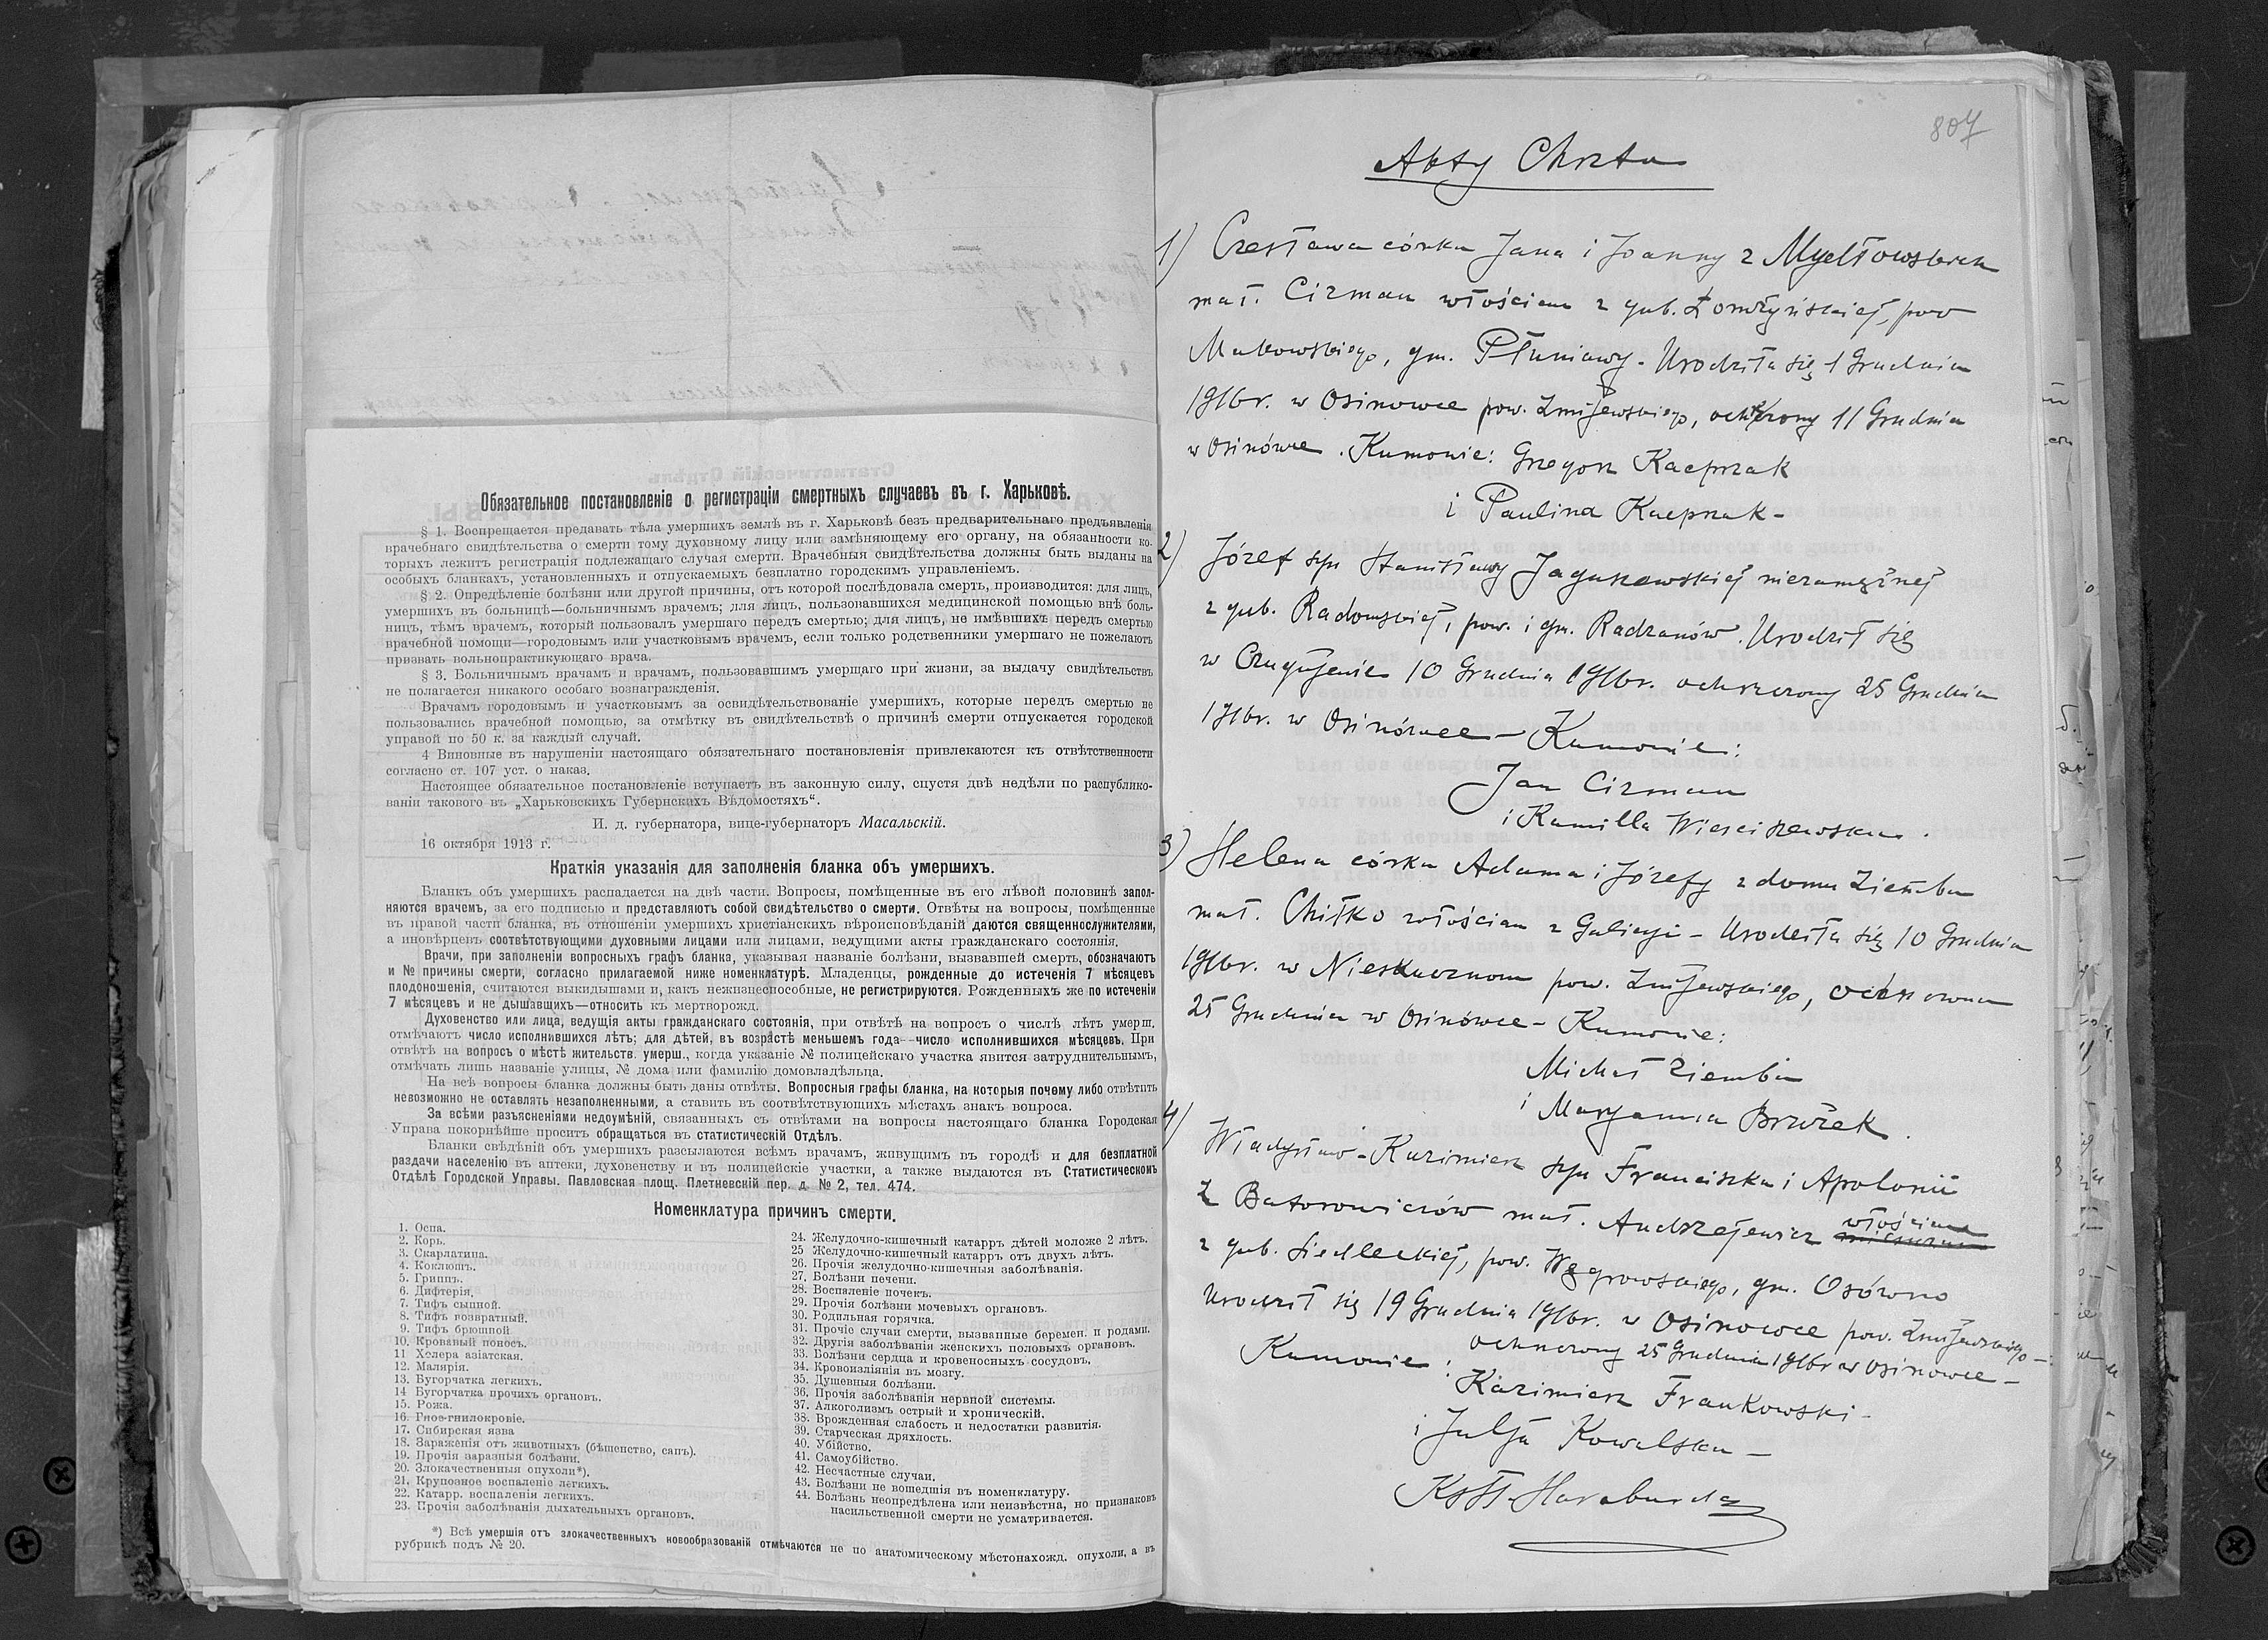 Обязательное постановленіе о регистраціи смертныхъ случаевъ въ г. Харьковѣ.
§ 1. Воспрещается предавать тѣла умершихъ землѣ въ г. Харьковѣ безъ предварительнаго предъявленія
врачебнаго свидѣтельства о смерти тому духовному лицу или замѣняющему его органу, на обязанности ко-
торыхъ лежитъ регистрація подлежащаго случая смерти. Врачебныя свидѣтельства должны быть выданы на
особыхъ бланкахъ, установленныхъ и отпускаемыхъ безплатно городскимъ управленіемъ.
§ 2. Опредѣленіе болѣзни или другой причины, отъ которой послѣдовала смерть, производится: для лицъ,
умершихъ въ больницѣ—больничнымъ врачемъ; для лицъ, пользовавшихся медицинской помощью внѣ боль-
ницъ, тѣмъ врачемъ, который пользовалъ умершаго передъ смертью; для лицъ, не имѣвшихъ передъ смертью
врачебной помощи—городовымъ или участковымъ врачемъ, если только родственники умершаго не пожелаютъ
призвать вольнопрактикующаго врача.
§ 3. Больничнымъ врачамъ и врачамъ, пользовавшимъ умершаго при жизни, за выдачу свидѣтельствъ
не полагается никакого особаго вознагражденія.
Врачамъ городовымъ и участковымъ за освидѣтельствованіе умершихъ, которые передъ смертью не
пользовались врачебной помощью, за отмѣтку въ свидѣтельствѣ о причинѣ смерти отпускается городской
управой по 50 к. за каждый случай.
4 Виновные въ нарушеніи настоящаго обязательнаго постановленія привлекаются къ отвѣтственности
согласно ст. 107 уст. о наказ.
Настоящее обязательное постановленіе вступаетъ въ законную силу, спустя двѣ недѣли по распублико-
ваніи такового въ „Харьковскихъ Губернскихъ Вѣдомостяхъ“.
И. д. губернатора, вице-губернаторъ Масальскій.
16 октября 1913 г.
Краткія указанія для заполненія бланка объ умершихъ.
Бланкъ объ умершихъ распадается на двѣ части. Вопросы, помѣщенные въ его лѣвой половинѣ запол-
няются врачемъ, за его подписью и представляютъ собой свидѣтельство о смерти. Отвѣты на вопросы, помѣщенные
въ правой части бланка, въ отношеніи умершихъ христіанскихъ вѣроисповѣданій даются священнослужителями,
а иновѣрцевъ соотвѣтствующими духовными лицами или лицами, ведущими акты гражданскаго состоянія.
Врачи, при заполненіи вопросныхъ графъ бланка, указывая названіе болѣзни, вызвавшей смерть, обозначаютъ
и № причины смерти, согласно прилагаемой ниже номенклатурѣ. Младенцы, рожденные до истеченія 7 мѣсяцевъ
плодоношенія, считаются выкидышами и, какъ нежизнеспособные, не регистрируются. Рожденныхъ же по истеченіи
7 мѣсяцевъ и не дышавшихъ—относить къ мертворожд.
Духовенство или лица, ведущія акты гражданскаго состоянія, при отвѣтѣ на вопросъ о числѣ лѣтъ умерш.
отмѣчаютъ число исполнившихся лѣтъ; для дѣтей, въ возрастѣ меньшемъ года--число исполнившихся мѣсяцевъ. При
отвѣтѣ на вопросъ о мѣстѣ жительств. умерш., когда указаніе № полицейскаго участка явится затруднительнымъ,
отмѣчать лишь названіе улицы, № дома или фамилію домовладѣльца.
На всѣ вопросы бланка должны быть даны отвѣты. Вопросныя графы бланка, на которыя почему либо отвѣтить
невозможно не оставлять незаполненными, а ставить въ соотвѣтствующихъ мѣстахъ знакъ вопроса.
За всѣми разъясненіями недоумѣній, связанныхъ съ отвѣтами на вопросы настоящаго бланка Городская
Управа покорнѣйше проситъ обращаться въ статистическій Отдѣлъ.
Бланки свѣдѣній объ умершихъ разсылаются всѣмъ врачамъ, живущимъ въ городѣ и для безплатной
раздачи населенію въ аптеки, духовенству и въ полицейскіе участки, а также выдаются въ Статистическомъ
Отдѣлѣ Городской Управы. Павловская площ. Плетневскій пер. д. № 2, тел. 474.
Номенклатура причинъ смерти.
1. Оспа.
2. Корь.
3. Скарлатина.
4. Коклюшъ.
5. Гриппъ.
6. Дифтерія.
7. Тифъ сыпной.
8. Тифъ возвратный.
9. Тифъ брюшной
10. Кровавый поносъ.
11 Холера азіатская.
12. Малярія.
13. Бугорчатка легкихъ.
14 Бугорчатка прочихъ органовъ.
15. Рожа.
16. Гное-гнилокровіе.
17. Сибирская язва
18. Зараженія отъ животныхъ (бѣшенство, сапъ).
19. Прочія заразныя болѣзни.
20. Злокачественныя опухоли*).
21. Крупозное воспаленіе легкихъ.
22. Катарр. воспаленія легкихъ.
23. Прочія заболѣванія дыхательныхъ органовъ.
24. Желудочно-кишечный катарръ дѣтей моложе 2 лѣтъ.
25 Желудочно-кишечный катарръ отъ двухъ лѣтъ.
26. Прочія желудочно-кишечныя заболѣванія.
27. Болѣзни печени.
28. Воспаленіе почекъ.
29. Прочія болѣзни мочевыхъ органовъ.
30. Родильная горячка.
31. Прочіе случаи смерти, вызванные беремен. и родами.
32. Другія заболѣванія женскихъ половыхъ органовъ.
33. Болѣзни сердца и кровеносныхъ сосудовъ.
34. Кровоизліянія въ мозгу.
35. Душевныя болѣзни.
36. Прочія заболѣванія нервной системы.
37. Алкоголизмъ острый и хроническій.
38. Врожденная слабость и недостатки развитія.
39. Старческая дряхлость.
40. Убійство.
41. Самоубійство.
42. Несчастные случаи.
43. Болѣзни не вошедшія въ номенклатуру.
44. Болѣзнь неопредѣлена или неизвѣстна, но признаковъ
насильственной смерти не усматривается.
*) Всѣ умершія отъ злокачественныхъ новообразованій отмѣчаются не по анатомическому мѣстонахожд. опухоли, а въ
рубрикѣ подъ № 20.
807
Akty Chrztu
1) Czesława córka Jana i Joanny z
mał. Cizman włościan z gub. Łomżyńskiej, pow
Makowskiego, gm. Płuniawy - Urodziła się 1 Grudnia
1916r. w Osinowce pow. Zmijewskiego, ochrzczony 11 Grudnia
w Osinówce. Kumowie: Grzegorz Kacprzak
i Paulina Kacprzak -
2) Józef syn Stanisławy Jaguszewskiej niezamężnej
z gub. Radomskiej, pow. i gm. Radzanów. Urodził się
w Czugujewie 10 Grudnia 1916r. ochrzczony 25 Grudnia
1916r. w Osinówce - Kumowie:
Jan Cizman
i Kamilla Wierciszewska.
3) Helena córka Adama i Józefy z domu Ziemba
mał. Chitko włościan z Galicyi - Urodziła się 10 Grudnia
1916r. w Nieskucznom pow. Zmijewskiego, ochrzczona
25 Grudnia w Osinówce - Kumowie:
Michał Ziemba
i Maryanna Brożek.
4) Władysław-Kazimierz syn Franciszka i Apolonii
z Batorowiczów mał. Andrzejewicz włościan
z gub. Siedleckiej, pow. Węgrowskiego, gm. Osówno
Urodził się 19 Grudnia 1916r. w Osinowce pow. Zmijewskiego -
ochrzczony 25 Grudnia 1916r w Osinowce -
Kumowie:
Kazimierz Frankowski -
i Julja Kowalska -